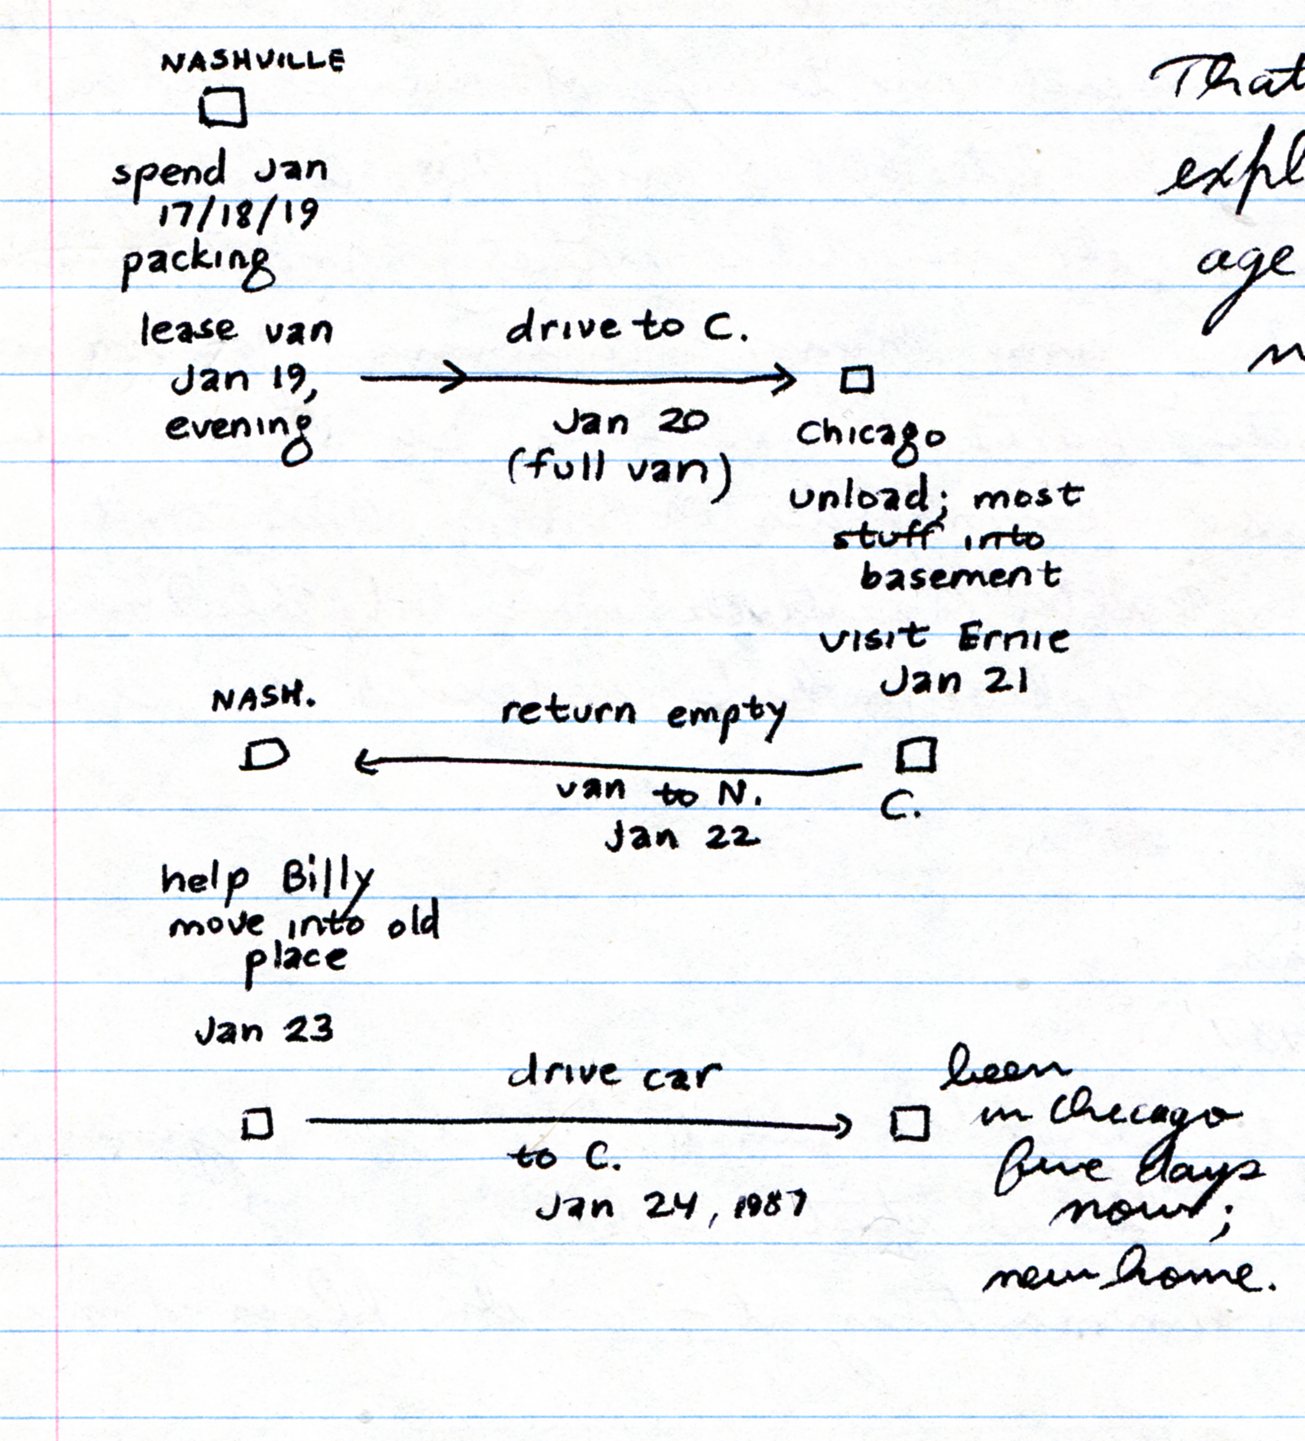 NASHVILLE
spend Jan
17/18/19
packing
lease van
Jan 19,
evening
drive to C.
Jan 20
(full van)
Chicago
unload; most
stuff into
basement
visit Ernie
Jan 21
C.
return empty
van to N.
Jan 22
NASH.
help Billy
move into old
place
Jan 23
drive car
to C.
Jan 24, 1987
been
in Chicago
five days
now;
new home.
That
expl
age